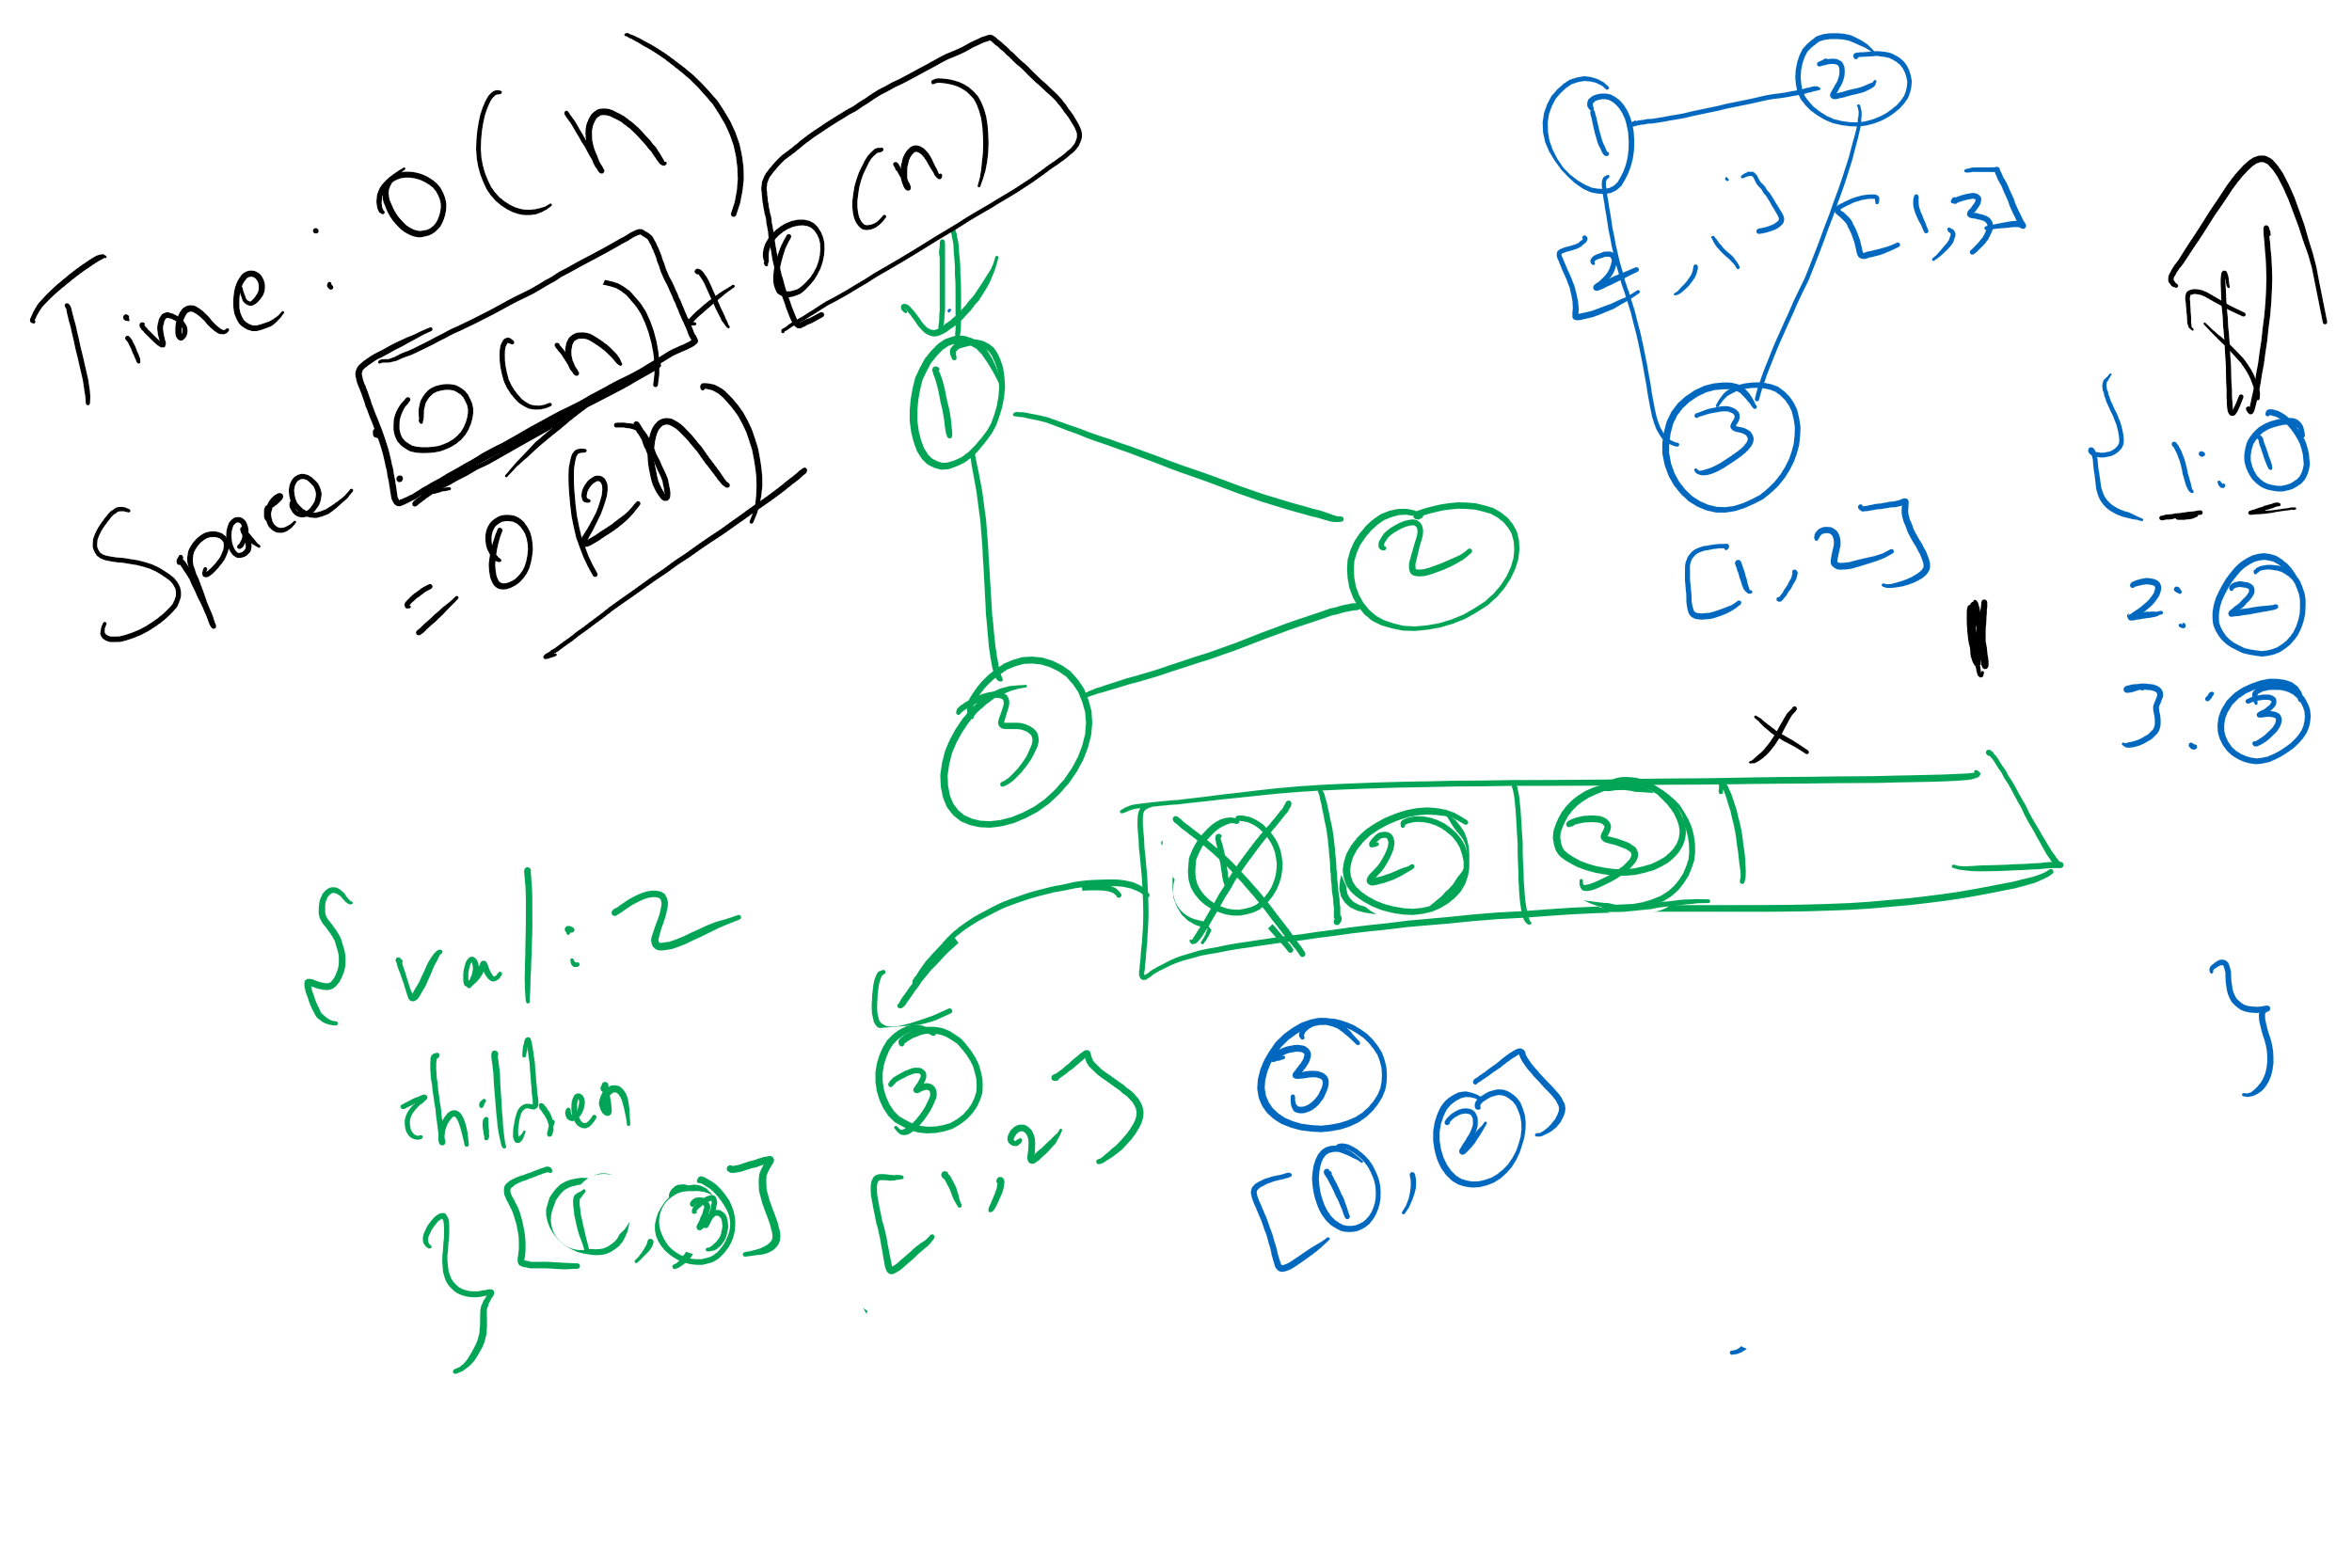 Time: O(n)
Space: O(n) + O(n)
= O(2n)
1
2
3
[2, 3]
[1, 3]
[1, 2]
{ 1: 1
2: 2
3: 3
}
1
2
3
X
1 2 3
{ val: 2
children
[1, 3]
}
3
[1, 2]
3
[1, 2]